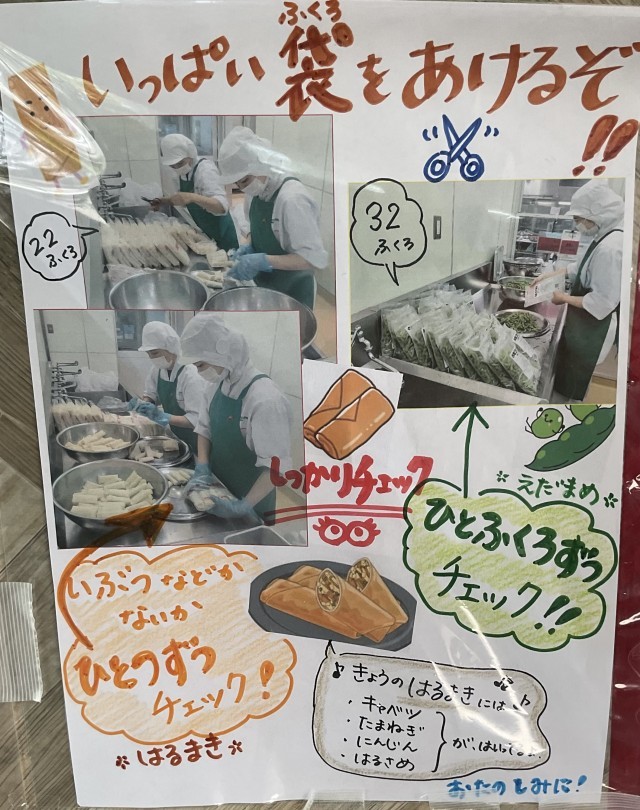 ふくろ
いっぱい袋をあけるぞ!!
22
ふくろ
32
ふくろ
しっかりチェック
えだまめ
ひとふくろずつ
チェック!!
いぶつなどが
ないか
ひとつずつ
チェック!
はるまき
♪きょうのはるまきには♪
・キャベツ
・たまねぎ
・にんじん
・はるさめ
が、はいって
おたのしみに!